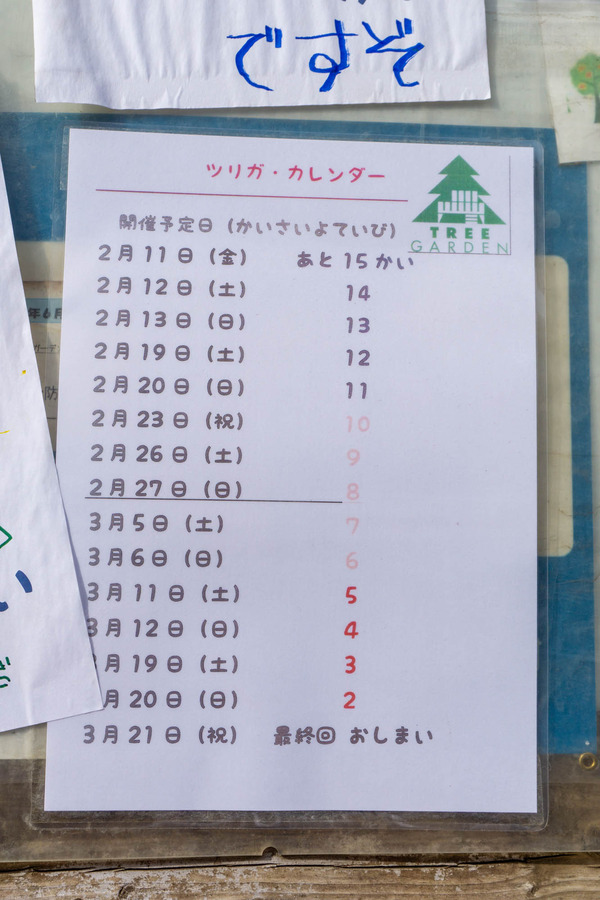 ですぞ
ツリガ・カレンダー
TREE
GARDEN
開催予定日（かいさいよていび）
2月11日（金） あと15かい
2月12日（土） 14
2月13日（日） 13
2月19日（土） 12
2月20日（日） 11
2月23日（祝） 10
2月26日（土） 9
2月27日（日） 8
3月5日（土） 7
3月6日（日） 6
3月11日（土） 5
3月12日（日） 4
月19日（土） 3
月20日（日） 2
3月21日（祝） 最終回 おしまい
年6月
防
い